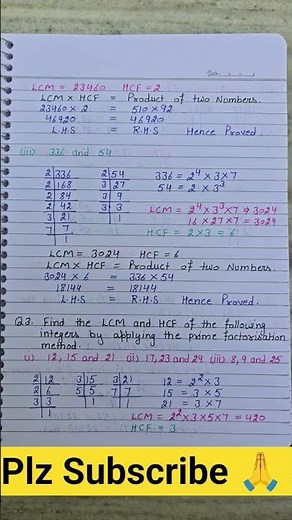 Date
LCM = 23460 HCF = 2
LCM × HCF = Product of two Numbers.
23460 × 2 = 510 × 92
46920 = 46920
L.H.S = R.H.S Hence Proved.
(iii) 336 and 54
2 336 2 54 336 = 2⁴ × 3 × 7
2 168 3 27 54 = 2 × 3³
2 84 3 9
2 42 3 3 LCM = 2⁴ × 3³ × 7 ⇒ 3024
3 21 1 16 × 27 × 7 = 3024
7 7 HCF = 2 × 3 = 6
1
LCM = 3024 HCF = 6
LCM × HCF = Product of two Numbers.
3024 × 6 = 336 × 54
18144 = 18144
L.H.S = R.H.S Hence Proved.
Q3. Find the LCM and HCF of the following
integers by applying the prime factorisation
method.
(i) 12, 15 and 21 (ii) 17, 23 and 29 (iii) 8, 9 and 25
2 12 3 15 3 21 12 = 2² × 3
2 6 5 5 7 7 15 = 3 × 5
3 3 1 1 21 = 3 × 7
1 LCM = 2² × 3 × 5 × 7 = 420
HCF = 3
Plz Subscribe 🙏